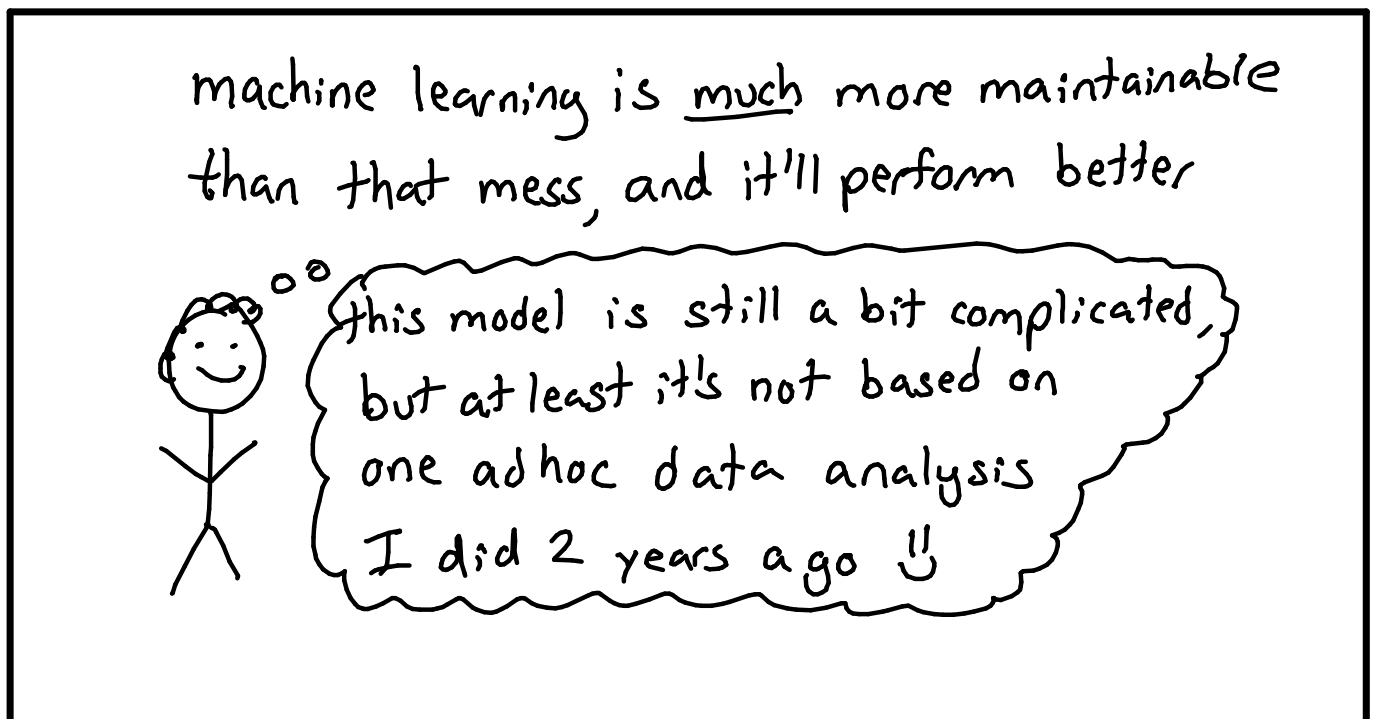 machine learning is much more maintainable
than that mess, and it'll perform better
this model is still a bit complicated,
but at least it's not based on
one ad hoc data analysis
I did 2 years ago